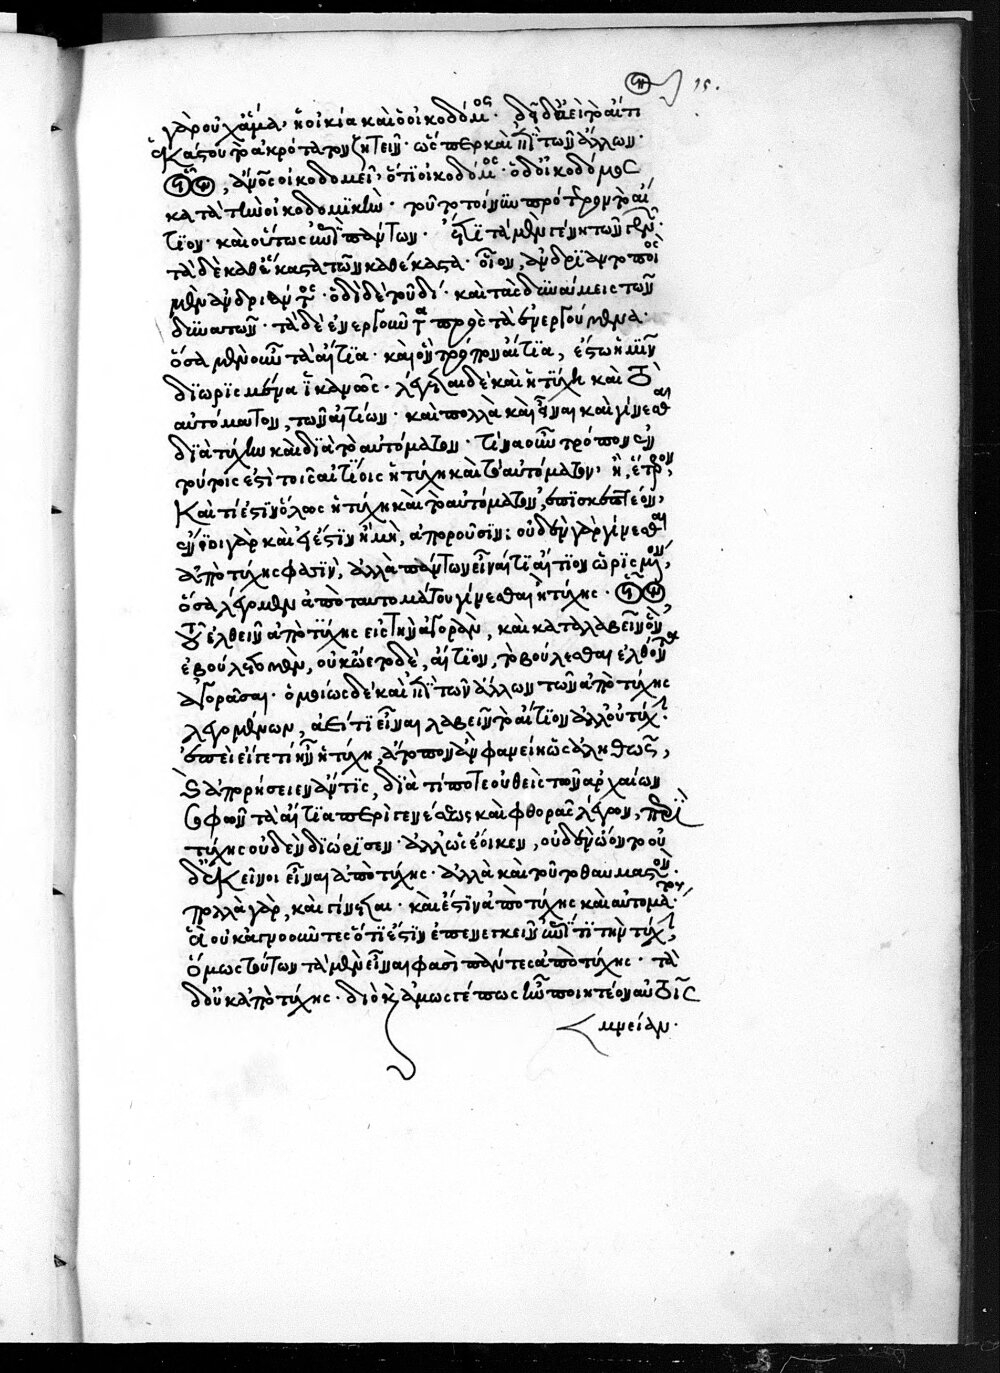 15.
γὰρ οὐχ ἅμα ἡ οἰκία καὶ ὁ οἰκοδόμος· δεῖ δὲ ἀεὶ τὸ αἴτι
ἑκάστου τὸ ἀκρότατον ζητεῖν· ὥσπερ καὶ ἐπὶ τῶν ἄλλων·
ἄνος οἰκοδομεῖ, ὅτι οἰκοδόμος· ὁ δ οἰκοδόμος
κατὰ τὴν οἰκοδομικὴν· τοῦτο τοίνυν πρότερον τὸ αἴ
τιον· καὶ οὕτως ἐπὶ πάντων· ἔτι τὰ μὲν γένη τῶν γενῶν·
τὰ δὲ καθέκαστα τῶν καθέκαστα· οἷον, ἀνδριαντοποιὸς
μὲν ἀνδριάντος· ὁδὶ δὲ τοῦδί· καὶ τὰς δυνάμεις τῶν
δυνατῶν· τὰ δὲ ἐνεργοῦντα πρὸς τὰ ἐνεργούμενα·
ὅσα μὲν οὖν τὰ αἴτια· καὶ ὃν τρόπον αἴτια, ἔστω ἡμῖν
διωρισμένα ἱκανῶς· λέγεται δὲ καὶ ἡ τύχη καὶ τὸ
αὐτόματον, τῶν αἰτίων· καὶ πολλὰ καὶ εἶναι καὶ γίνεσθαι
διὰ τύχην καὶ διὰ τὸ αὐτόματον· τίνα οὖν τρόπον ἐν
τούτοις ἐστὶ τοῖς αἰτίοις ἡ τύχη καὶ τὸ αὐτόματον·
καὶ τί ἐστὶν ὅλως ἡ τύχη καὶ τὸ αὐτόματον, ἐπισκεπτέον·
ἔνιοι γὰρ καὶ εἰ ἔστὶν ἢ μὴ, ἀποροῦσιν· οὐδὲν γὰρ γίνεσθαι
ἀπὸ τύχης φασὶν, ἀλλὰ πάντων εἶναί τι αἴτιον ὡρισμένον,
ὅσα λέγομεν ἀπὸ ταυτομάτου γίνεσθαι ἢ τύχης·
τοῦ ἐλθεῖν ἀπὸ τύχης εἰς τὴν ἀγορὰν, καὶ καταλαβεῖν ὃν
ἐβούλετο μὲν, οὐκ ᾤετο δὲ, αἴτιον, τὸ βούλεσθαι ἐλθόντα
ἀγοράσαι· ὁμοίως δὲ καὶ ἐπὶ τῶν ἄλλων τῶν ἀπὸ τύχης
λεγομένων, ἀεί τι εἶναι λαβεῖν τὸ αἴτιον ἀλλ οὐ τύχην·
ἐπεὶ εἴγε τὶ ἦν ἡ τύχη, ἄτοπον ἂν φανείη ὡς ἀληθῶς,
καὶ ἀπορήσειεν ἄν τις, διὰ τί ποτε οὐθεὶς τῶν ἀρχαίων
σοφῶν τὰ αἴτια περὶ γενέσεως καὶ φθορᾶς λέγων, περὶ
τύχης οὐδὲν διώρισεν· ἀλλ ὡς ἔοικεν, οὐδὲν ᾤοντο οὐ
δ ἐκεῖνοι εἶναι ἀπὸ τύχης· ἀλλὰ καὶ τοῦτο θαυμαστὸν·
πολλὰ γὰρ, καὶ γίνεται· καὶ ἔστιν ἀπὸ τύχης καὶ αὐτομάτου·
ἃ οὐκ ἀγνοοῦντες ὅτι ἔστιν ἐπενεγκεῖν ἐπί τι τὴν τύχην,
ὅμως τούτων τὰ μὲν εἶναι φασὶ πάντες ἀπὸ τύχης· τὰ
δ οὐκ ἀπὸ τύχης· διὸ κἂν ἁμωσγέπως ἦν ποιητέον αὐτοῖς
μνείαν·